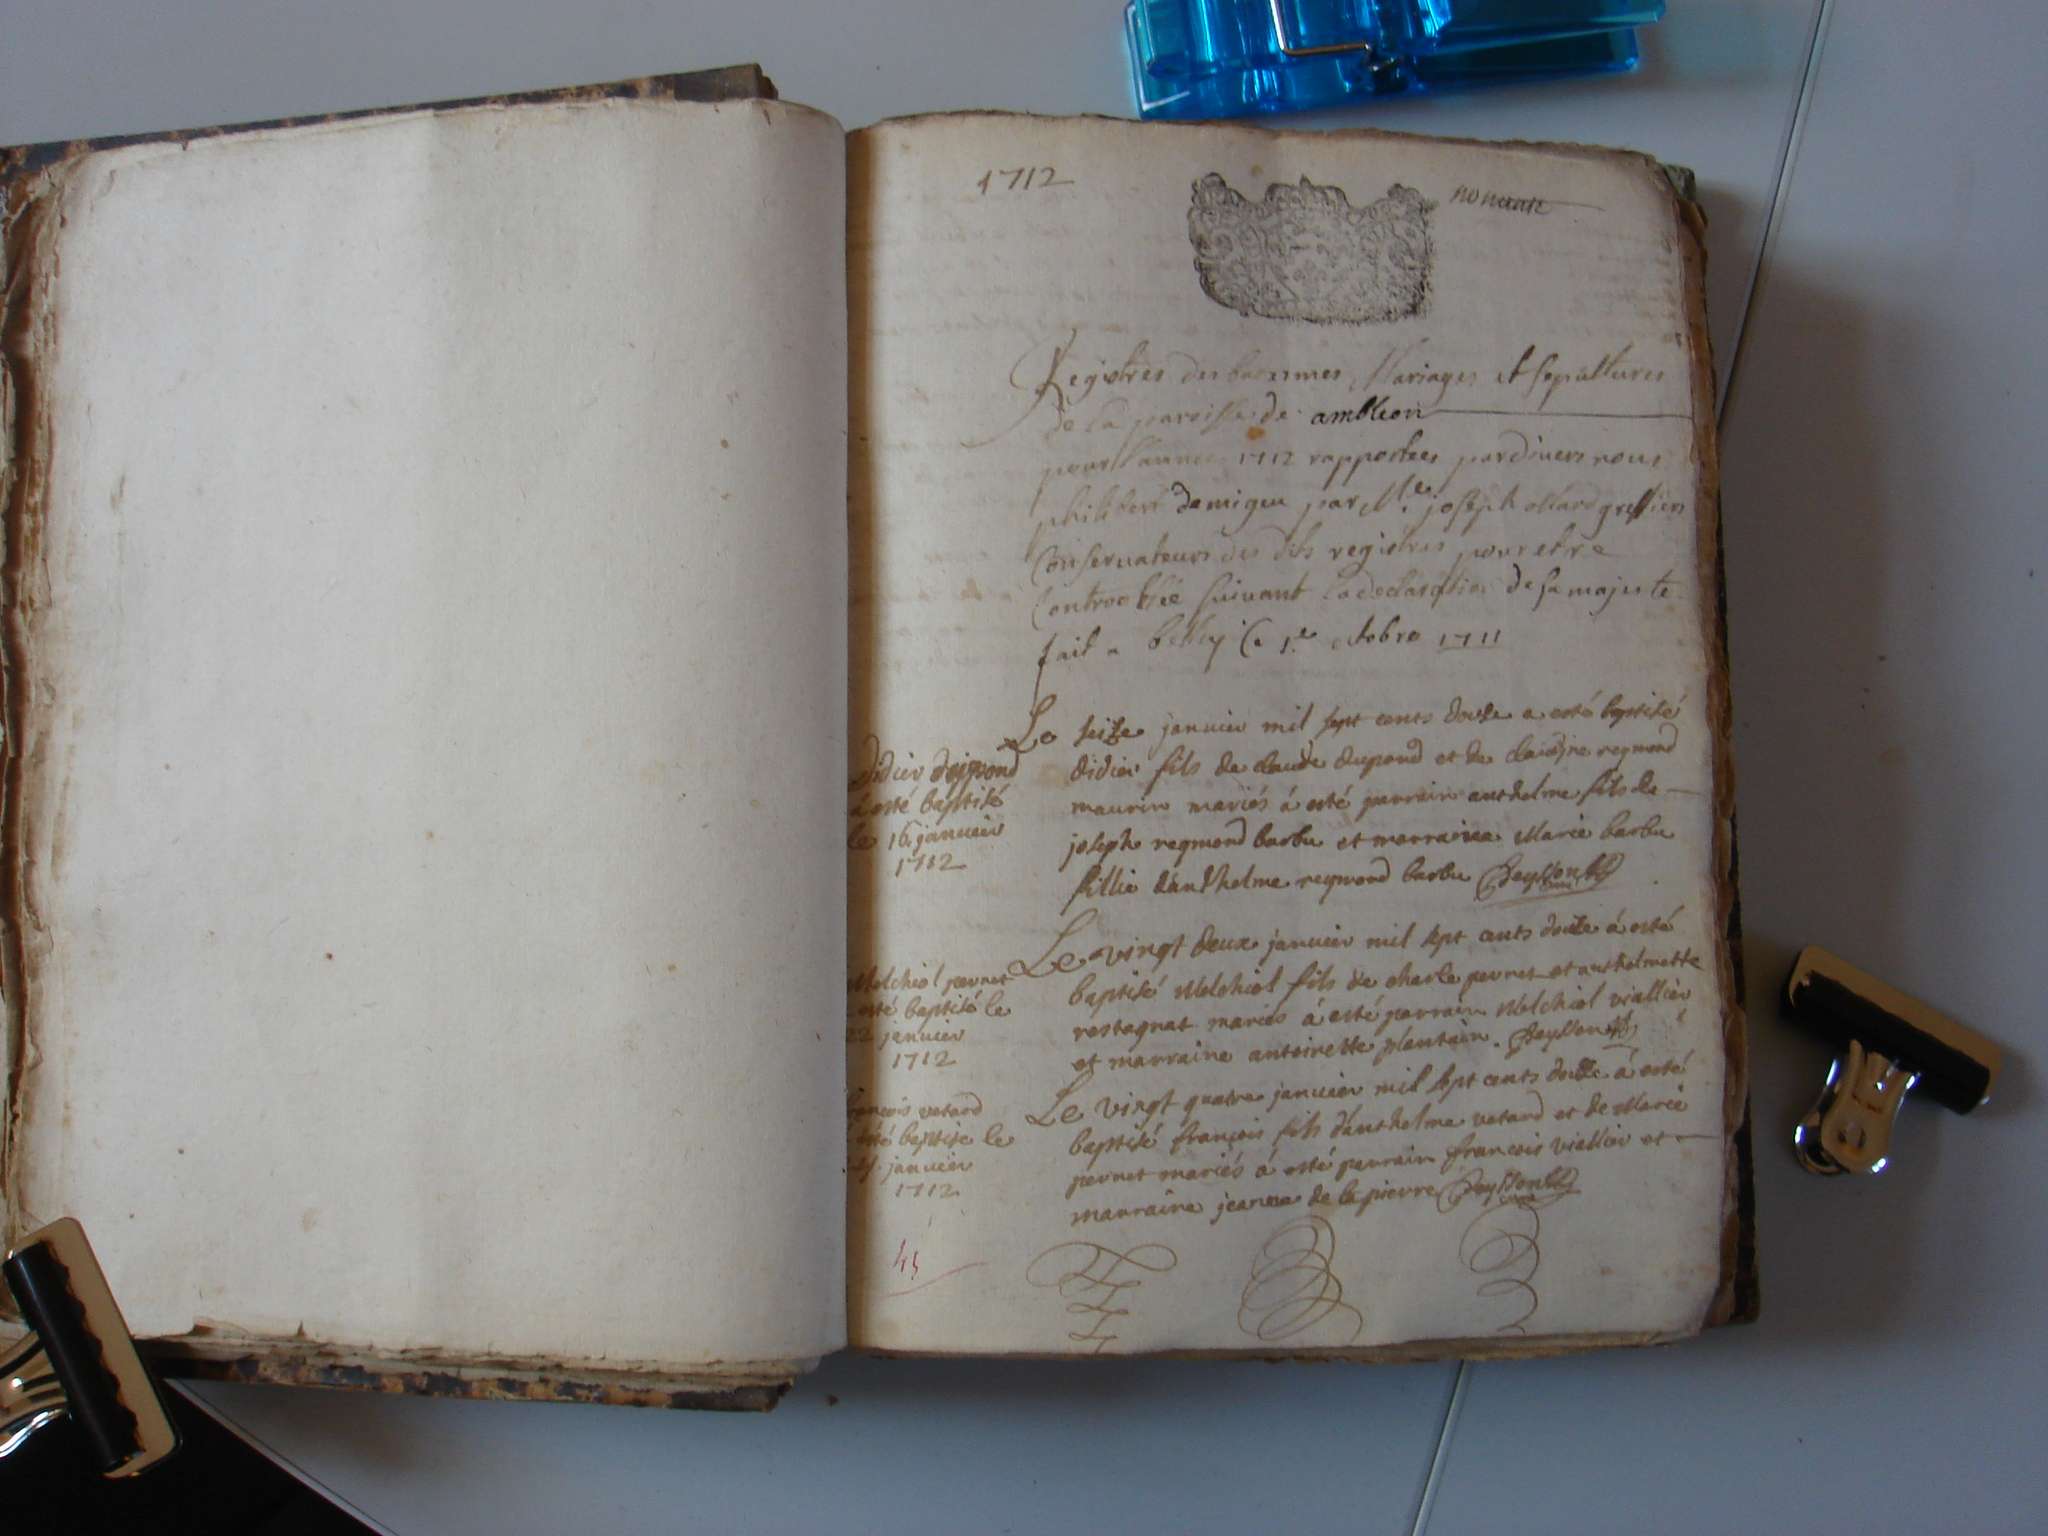 1712
nonante
Registres des batesmes Mariages et sepultures
de la paroisse de ambleon
pour l'année 1712 rapportees pardivers nous
philibert demigeu par Me. joseph greffiers
Conservateurs des dits registres pour etre
Controollée suivant la declaration de sa majeste
fait a belley Ce 1er. octobre 1711
Didier dupond
à esté baptisé
le 16 janvier
1712
Le seize janvier mil sept cents douze a esté baptisé
didier fils de claude dupond et de reymond
maurin mariés á esté parrain anthelme fils de
joseph reymond barbu et marraine Marie barbu
fillie d'anthelme reymond barbu
Melchiol pernet
esté baptisé le
22 janvier
1712
Le vingt deux janvier mil sept cents douze á esté
baptisé Melchiol fils de charle pernet et anthelmette
restagnat mariés á esté parrain Melchiol viallier
et marraine antoinette plantain.
françois vetard
esté baptise le
janvier
1712
Le vingt quatre janvier mil sept cents douze á esté
baptisé françois fils d'anthelme vetard et de Marie
pernet mariés á esté parrain françois viallier et
marraine jeanne de la pierre